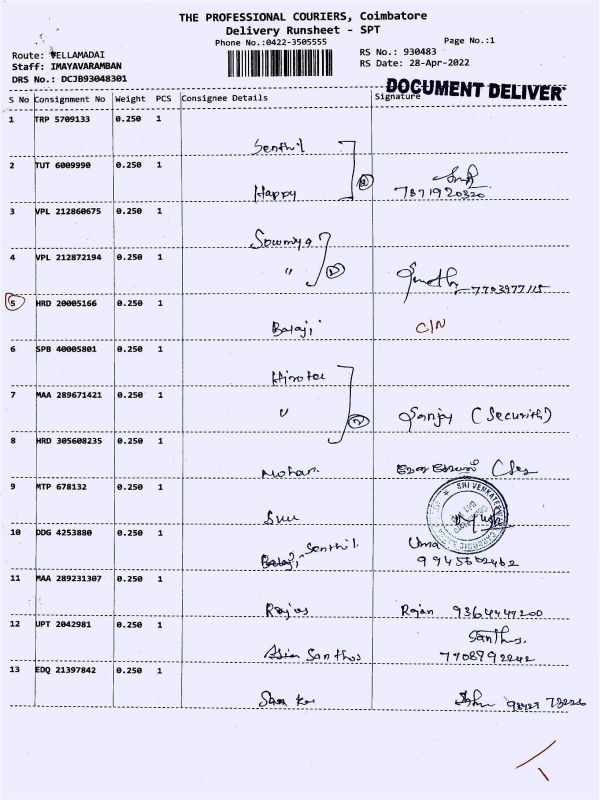 THE PROFESSIONAL COURIERS, Coimbatore
Delivery Runsheet - SPT
Phone No.:0422-3505555
Page No.:1
Route: VELLAMADAI
RS No.: 930483
Staff: IMAYAVARAMBAN
RS Date: 28-Apr-2022
DRS No.: DCJB93048301
DOCUMENT DELIVER
S No Consignment No Weight PCS Consignee Details Signature
1 TRP 5709133 0.250 1
Senthil
2 TUT 6009990 0.250 1
Happy 7871920320
3 VPL 212860675 0.250 1
Sowmya
4 VPL 212872194 0.250 1
"
7703977115
5 HRD 20005166 0.250 1
Balaji C/N
6 SPB 40005801 0.250 1
7 MAA 289671421 0.250 1
" Sanjay (Securith)
8 HRD 305608235 0.250 1
Mohan
9 MTP 678132 0.250 1
SRI VENKATE
10 DDG 4253880 0.250 1
Senthil Uma
11 MAA 289231307 0.250 1
Rajan
12 UPT 2042981 0.250 1
Santhos
Asian Santhos 7708792242
13 EDQ 21397842 0.250 1